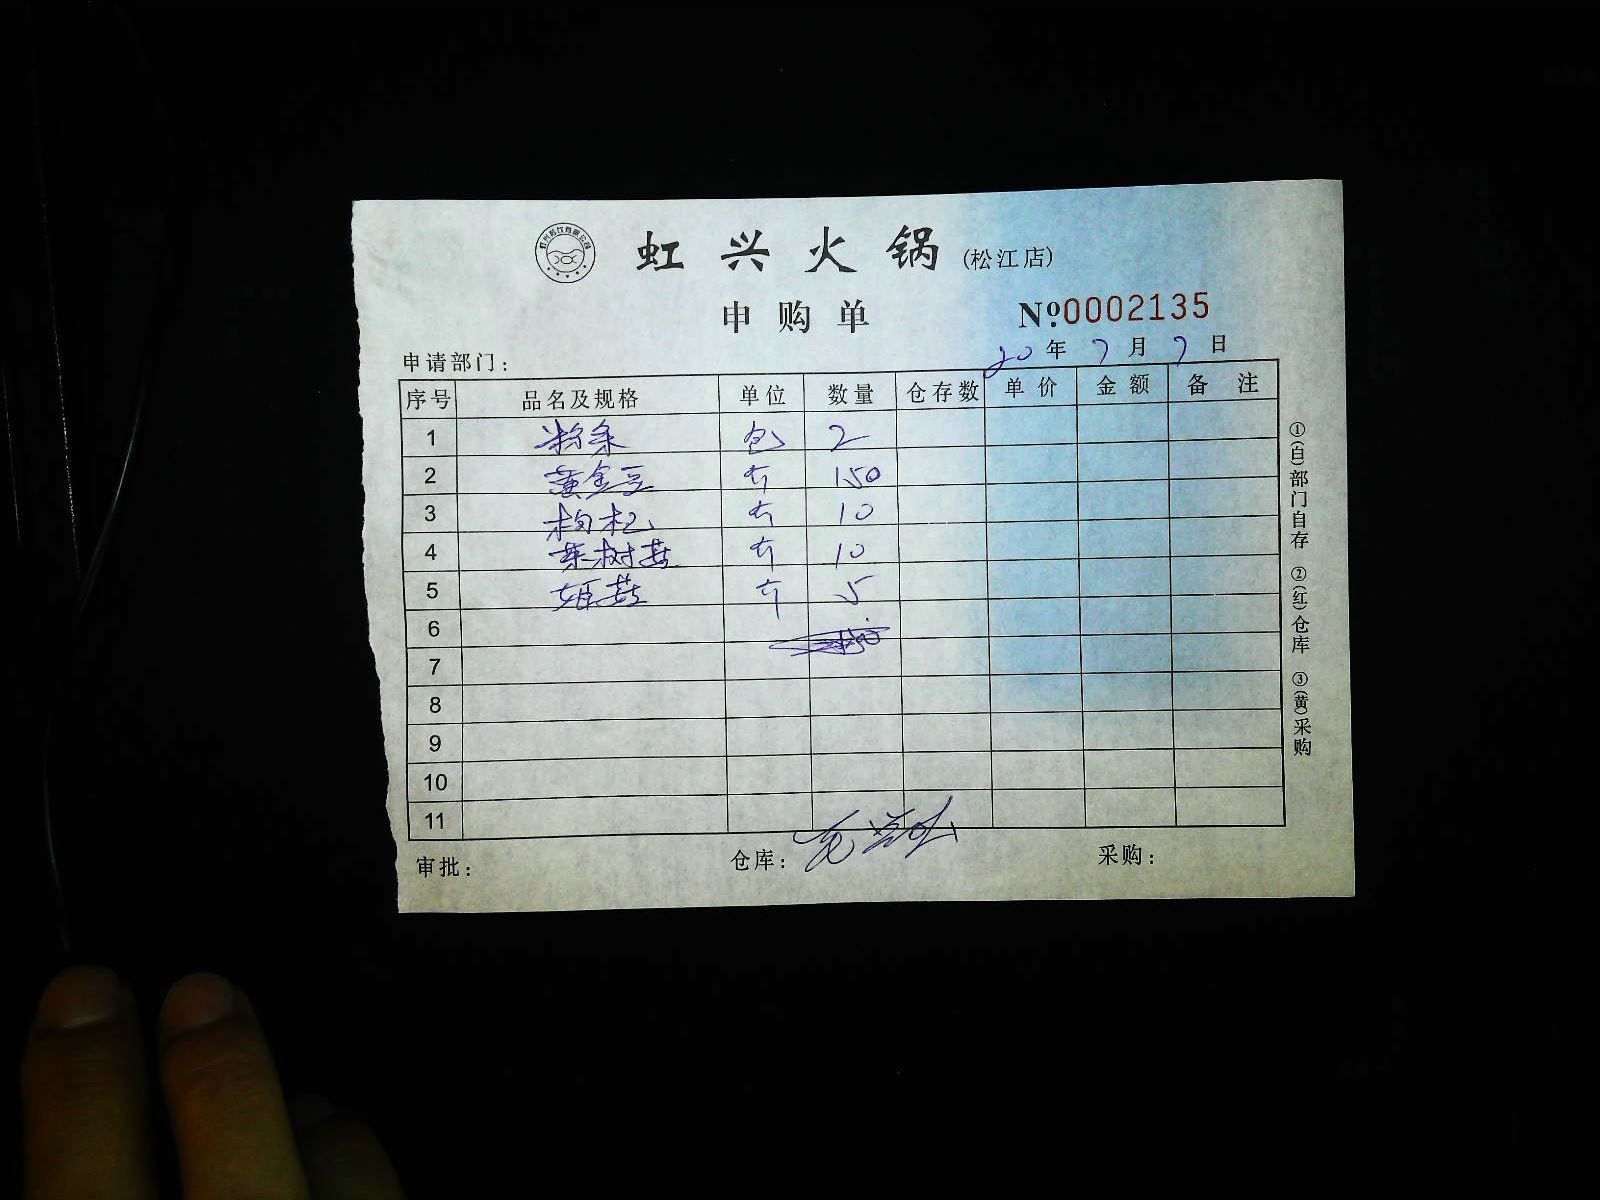 虹兴火锅 (松江店)
申购单 №0002135
申请部门： 20 年 7 月 7 日
序号 品名及规格 单位 数量 仓存数 单价 金额 备注
1 粉条 包 2
2 黄金豆 斤 150
3 枸杞 斤 10
4 茶树菇 斤 10
5 斤 5
6
7
8
9
10
11
审批： 仓库： 采购：
①(白)部门自存 ②(红)仓库 ③(黄)采购